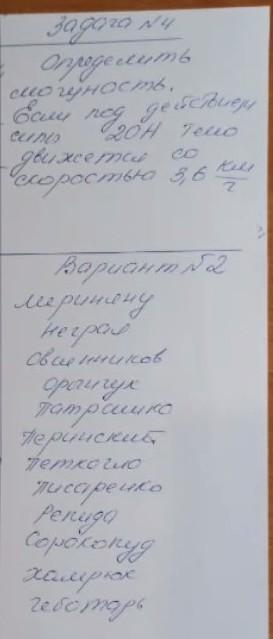 Задача №4
Определить
могущность.
Если под действием
силы 20Н тело
движется со
скоростью 3,6 км/г
Вариант №2
Мериняну
Неграя
Овсянников
Орлинчук
Патрашко
Перинский
Петкогло
Писаренко
Репида
Сорокопуд
Хамрюк
Чеботарь